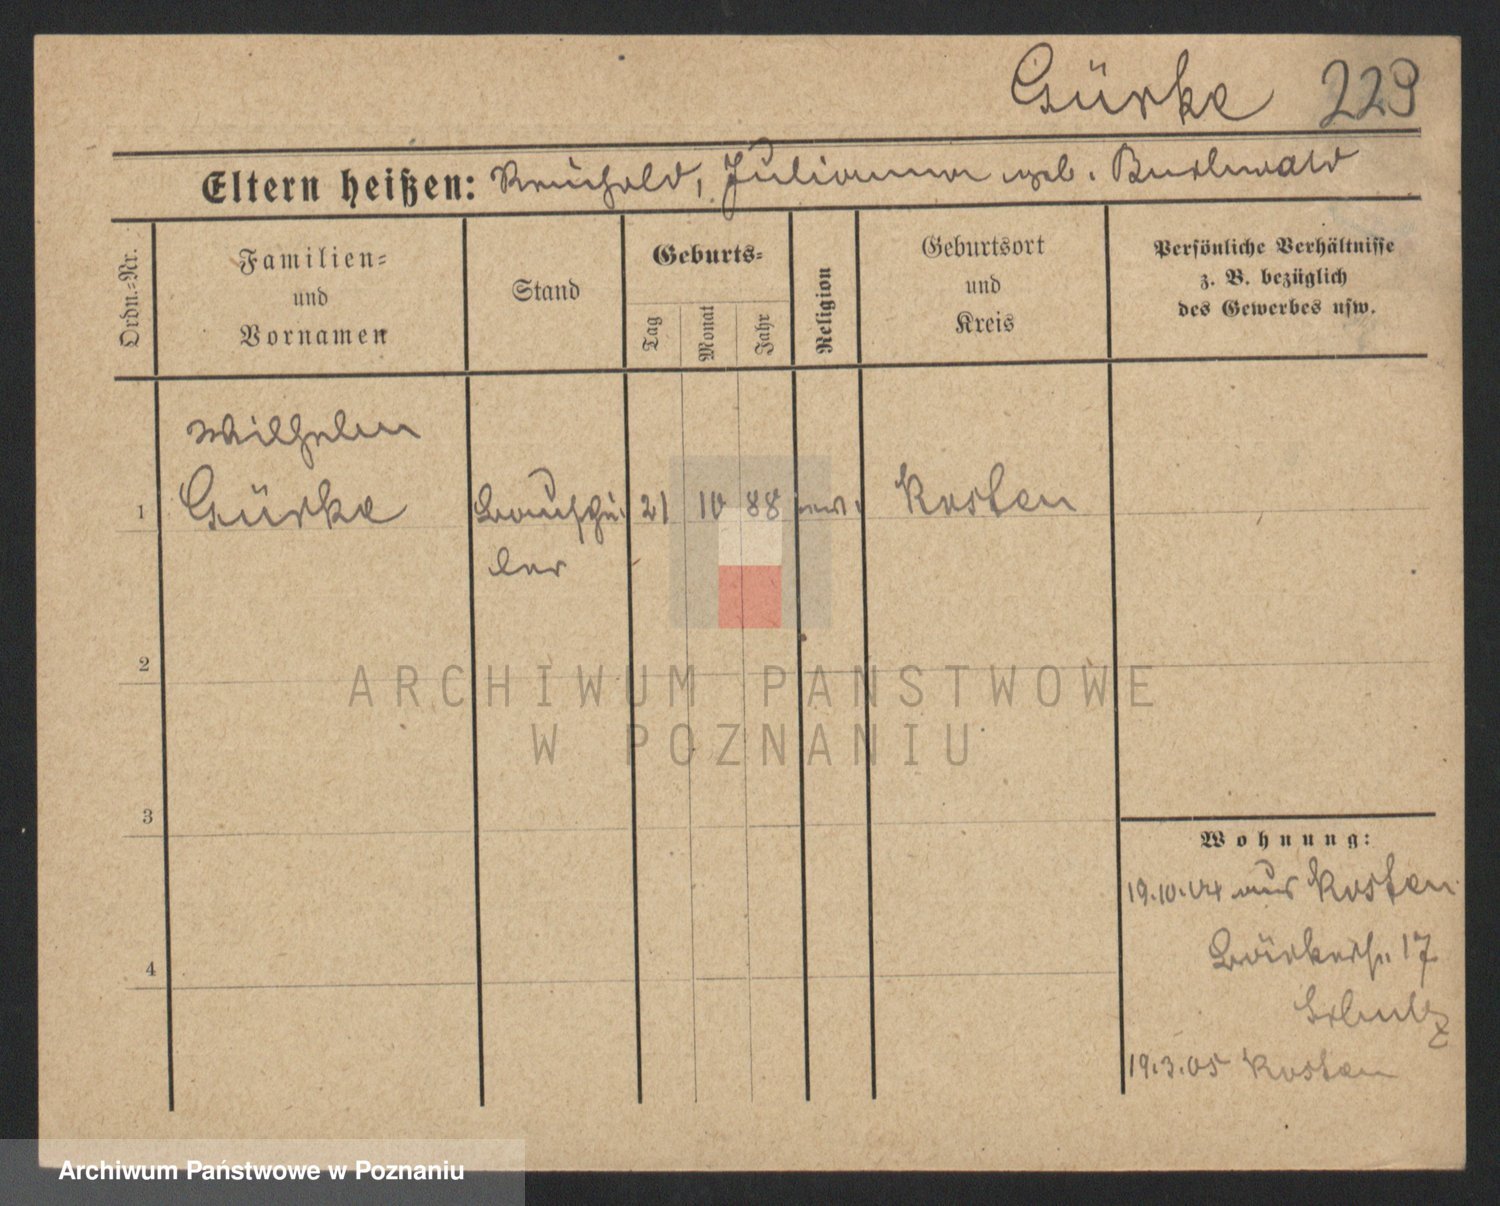 Gürke 229
Eltern heißen: Reinhold, Julianna geb. Buchwald
Ordn.-Nr.
Familien-
und
Vornamen
Stand
Geburts-
Tag
Monat
Jahr
Religion
Geburtsort
und
Kreis
Persönliche Verhältnisse
z. B. bezüglich
des Gewerbes usw.
Wilhelm
1 Gürke Bauschü- 21 10 88 ev. Kosten
ler
2
ARCHIWUM PAŃSTWOWE
W POZNANIU
3
Wohnung:
19.10.04 aus Kosten
Bäckerst. 17
Schulz
4
19.3.05 Kosten
Archiwum Państwowe w Poznaniu